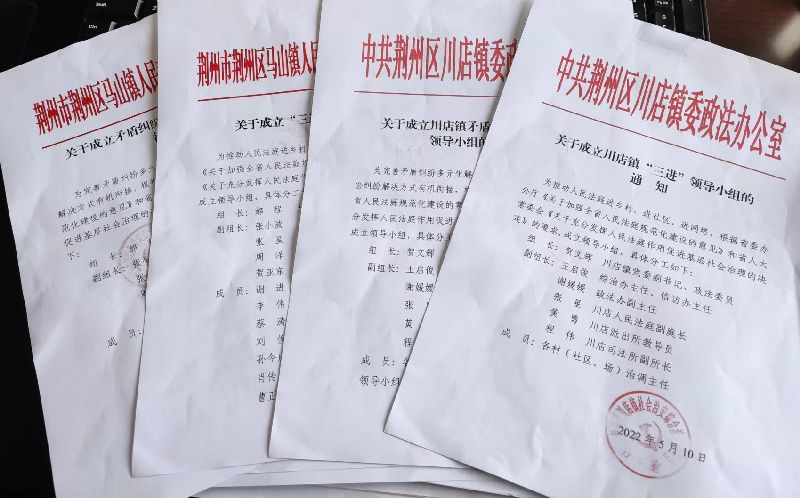 荆州市荆州区马山镇人民
关于成立矛盾纠纷
为完善矛盾纠纷多
解决方式有机衔接，根
范化建设的意见》和省
促进基层社会治理的
下：
组 长：郭
副组长：张
成 员：
荆州市荆州区马山镇人民
关于成立“三
为推动人民法庭进乡村
《关于加强全省人民法庭规
《关于充分发挥人民法庭作
成立领导小组，具体分工
组 长：郭 程
副组长：张小波
张 星
周 洋
贺亚东
成 员：谢 进
李 伟
蔡
刘
孙今
肖传
中共荆州区川店镇委政法
关于成立川店镇矛盾
领导小组的
为完善矛盾纠纷多元化解
讼纠纷解决方式有机衔接，
省人民法庭规范化建设的意
分发挥人民法庭作用促进
成立领导小组，具体分工
组 长：贺文辉
副组长：王启俊
谢媛媛
张
黄
程
成 员：各
领导小组
中共荆州区川店镇委政法办公室
关于成立川店镇“三进”领导小组的
通 知
为推动人民法庭进乡村、进社区、进网络，根据省委办
公厅《关于加强全省人民法庭规范化建设的意见》和省人大
常委会《关于充分发挥人民法庭作用促进基层社会治理的决
定》的要求，成立领导小组，具体分工如下：
组 长：贺文辉 川店镇党委副书记、政法委员
副组长：王启俊 综治办主任、信访办主任
谢媛媛 政法办副主任
张 星 川店人民法庭副庭长
黄 勇 川店派出所教导员
程 伟 川店司法所副所长
成 员：各村（社区、场）治调主任
2022 年 5 月 10 日